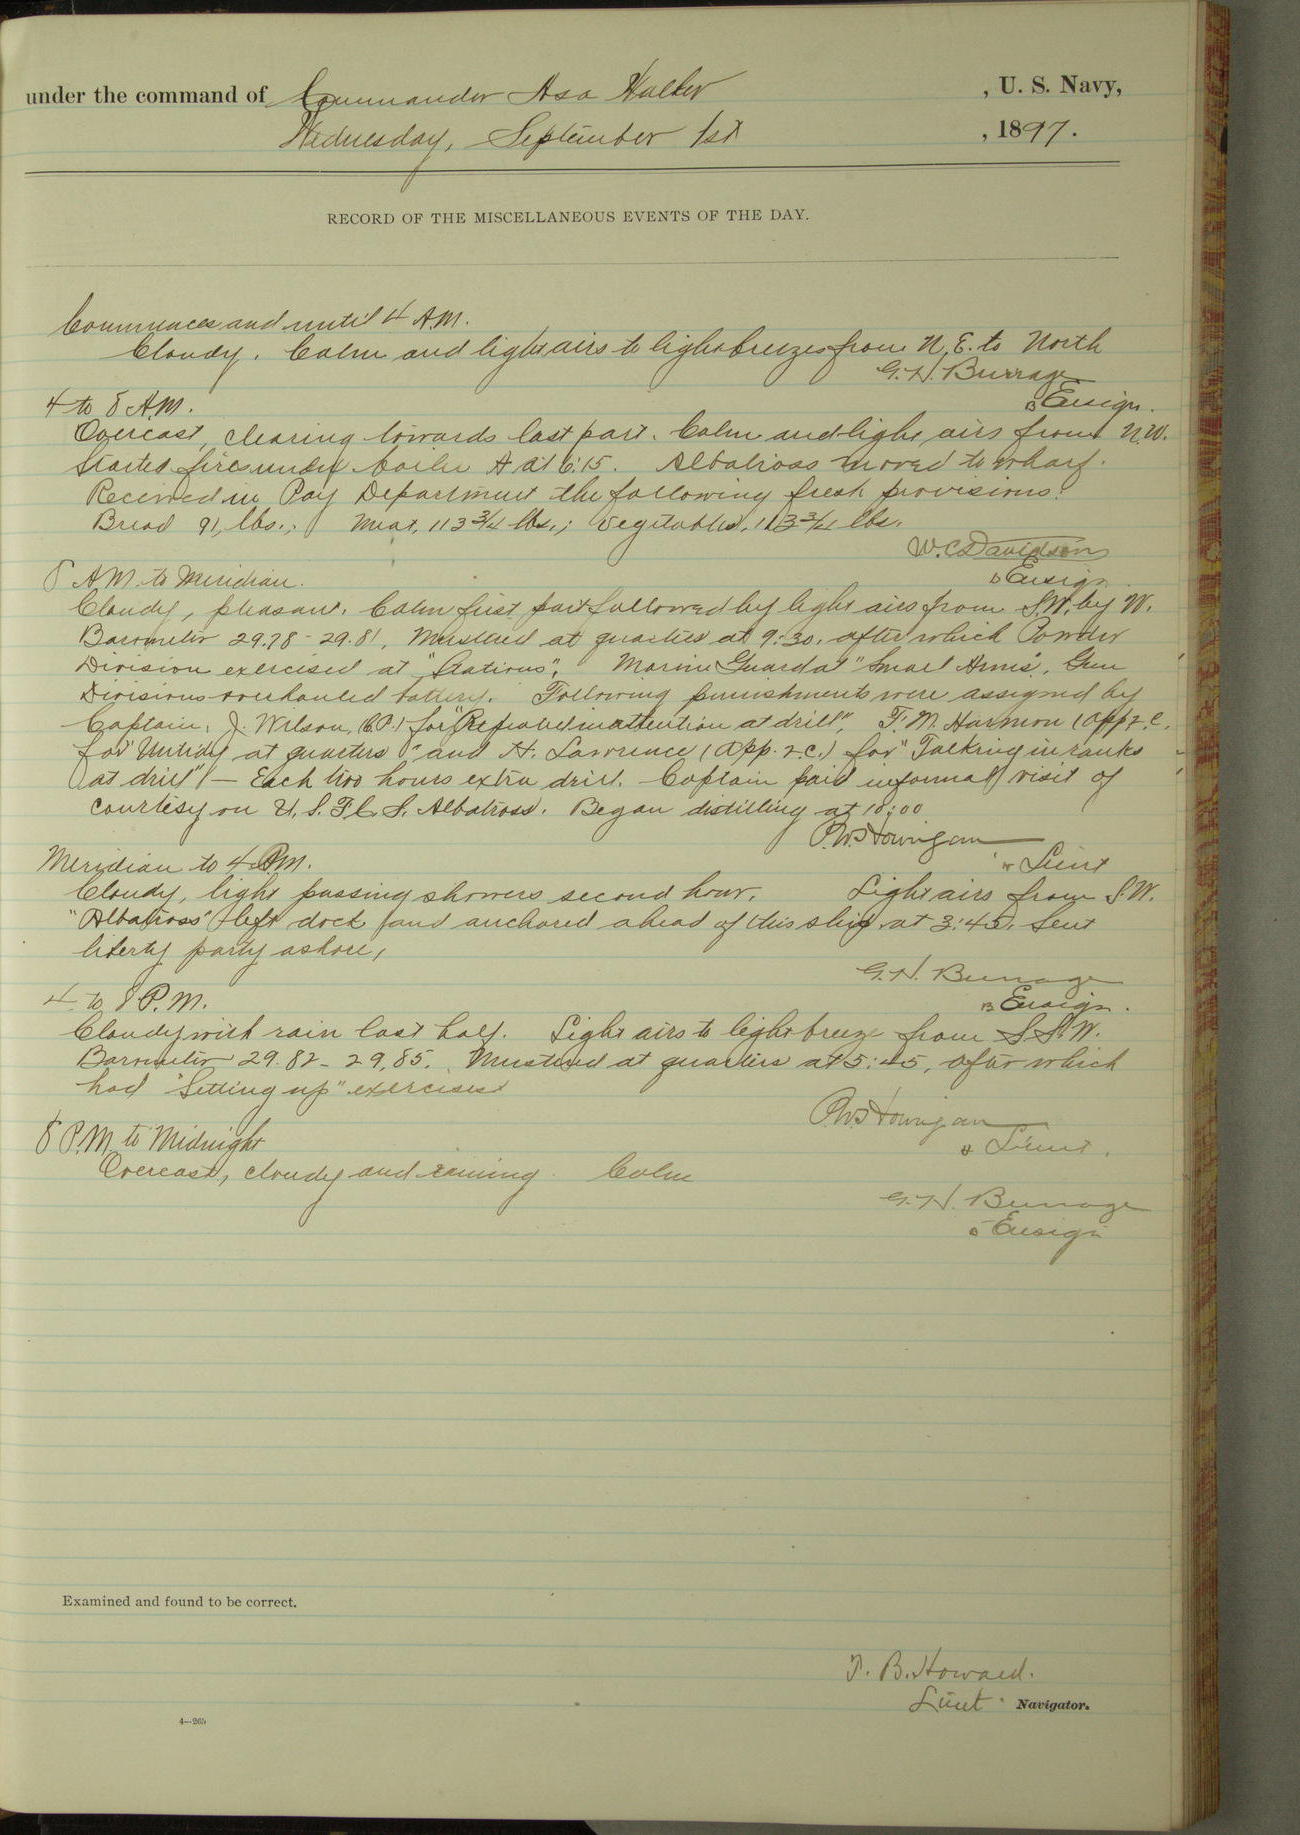 under the command of Commander Asa Walker , U. S. Navy,
Wednesday, September 1st , 1897.
RECORD OF THE MISCELLANEOUS EVENTS OF THE DAY.
Commences and until 4 A.M.
Cloudy. Calm and light airs to light breezes from N.E. to North
G. N. Burrage
Ensign.
4 to 8 A.M.
Overcast, clearing towards last part. Calm and light airs from N.W.
Started fires under boiler A at 6:15. Albatross moved to wharf.
Received in Pay Department the following fresh provisions:
Bread 91, lbs.; Meat, 113 3/4 lbs.; Vegetables, 113 3/4 lbs.
W. C. Davidson
Ensign
8 A.M. to Meridian.
Cloudy, pleasant. Calm first part followed by light airs from S.W. by W.
Barometer 29.78 - 29.81. Mustered at quarters at 9:30, after which Powder
Division exercised at "Stations", Marine Guard at "Small Arms", Gun
Divisions overhauled battery. Following punishments were assigned by
Captain, J. Wilson, (C.P.) for "Repeated inattention at drill", F. M. Harmon (App 2.c.
for "Untidy at quarters", and H. Lawrence (App. 2.c.) for "Talking in ranks
at drill" — Each two hours extra drill. Captain paid informal visit of
courtesy on U. S. F. C. S. Albatross. Began distilling at 10:00
P. W. Hourigan
Lieut
Meridian to 4 P.M.
Cloudy, light passing showers second hour. Light airs from S.W.
"Albatross" left dock and anchored ahead of this ship at 3:45. Sent
liberty party ashore,
G. N. Burrage
Ensign.
4 to 8 P.M.
Cloudy with rain last half. Light airs to light breeze from S.S.W.
Barometer 29.82 - 29.85. Mustered at quarters at 5:45, after which
had "Setting up" exercises
P. W. Hourigan
Lieut.
8 P.M. to Midnight
Overcast, cloudy and raining. Calm
G. N. Burrage
Ensign
Examined and found to be correct.
T. B. Howard.
Lieut. Navigator.
4—265